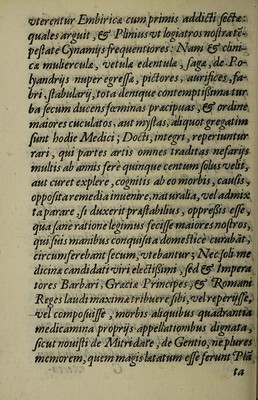 vterentur Embiricæ cum primis addicti sectæ:
quales arguit, & Plinius vt logiatros nostra tẽ-
pestate Cynamijs frequentiores: Nam & clini-
cæ muberculæ, vetulæ edentulæ, sagæ, de Po-
lyandrijs nuper egressæ, pictores, aurifices, fa-
bri, stabularij, tota denique contemptissima tur
ba secum ducens fœminas præcipuas, & ordine
maiores cuculatos, aut mystas, aliquot gregatim
sunt hodie Medici; Docti, integri, reperiuntur
rari, qui partes artis omnes traditas nefarijs
multis ab annis fere quinque centum solus velit,
aut curet explere, cognitis ab eo morbis, causis,
opposita remedia inuenire, naturalia, vel admix
ta parare, si duxerit præstabilius, oppressis esse,
qua sane ratione legimus fecisse maiores nostros,
qui suis manibus conquisita domestice curabãt,
circumferebant secum, vtebantur; Nec soli me
dicinæ candidati viri electissimi, sed & Impera
tores Barbari, Græciæ Principes, & Romani
Reges laudi maximæ tribuere sibi, vel reperisse,
vel composuisse, morbis aliquibus quadrantia
medicamina proprijs appellationibus dignata,
sicut nouisti de Mitridate, de Gentio, ne plures
memorem, quem magis lætatum esse ferunt Plã
ta